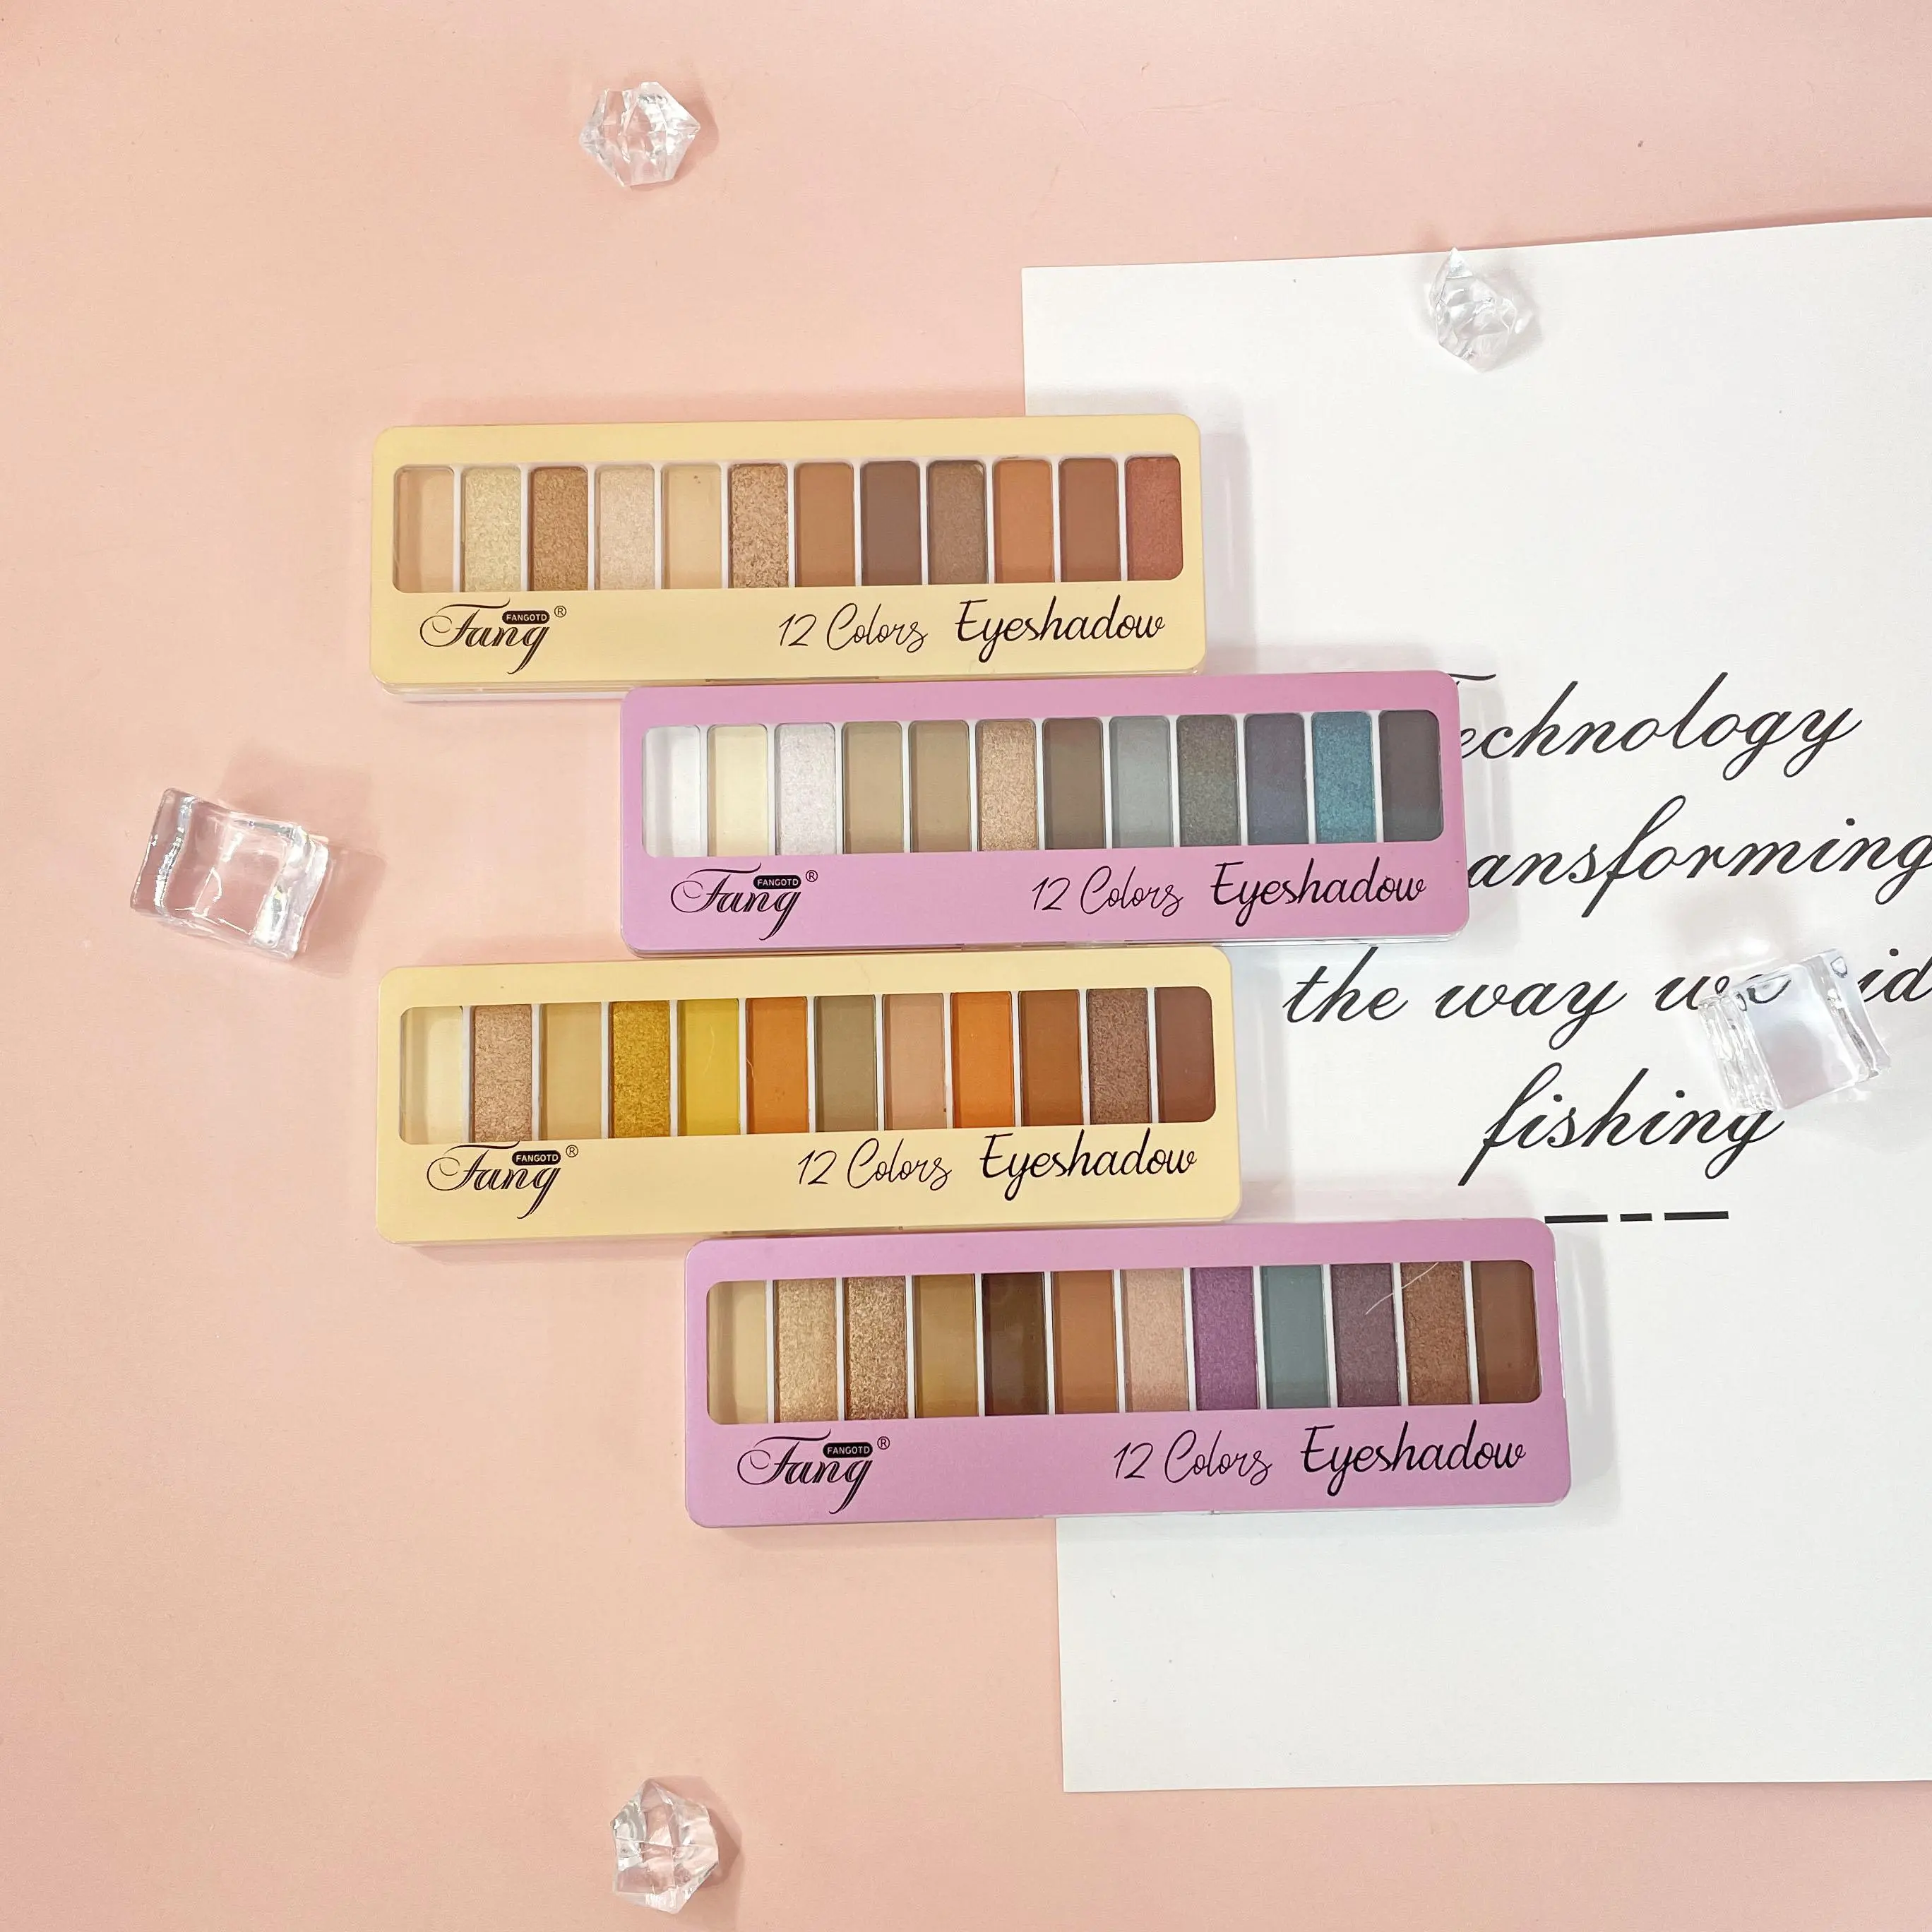 Fang FANGOTD ®
12 Colors Eyeshadow
Fang FANGOTD ®
12 Colors Eyeshadow
Technology
ansforming
the way we id
fishing
Fang FANGOTD ®
12 Colors Eyeshadow
Fang FANGOTD ®
12 Colors Eyeshadow